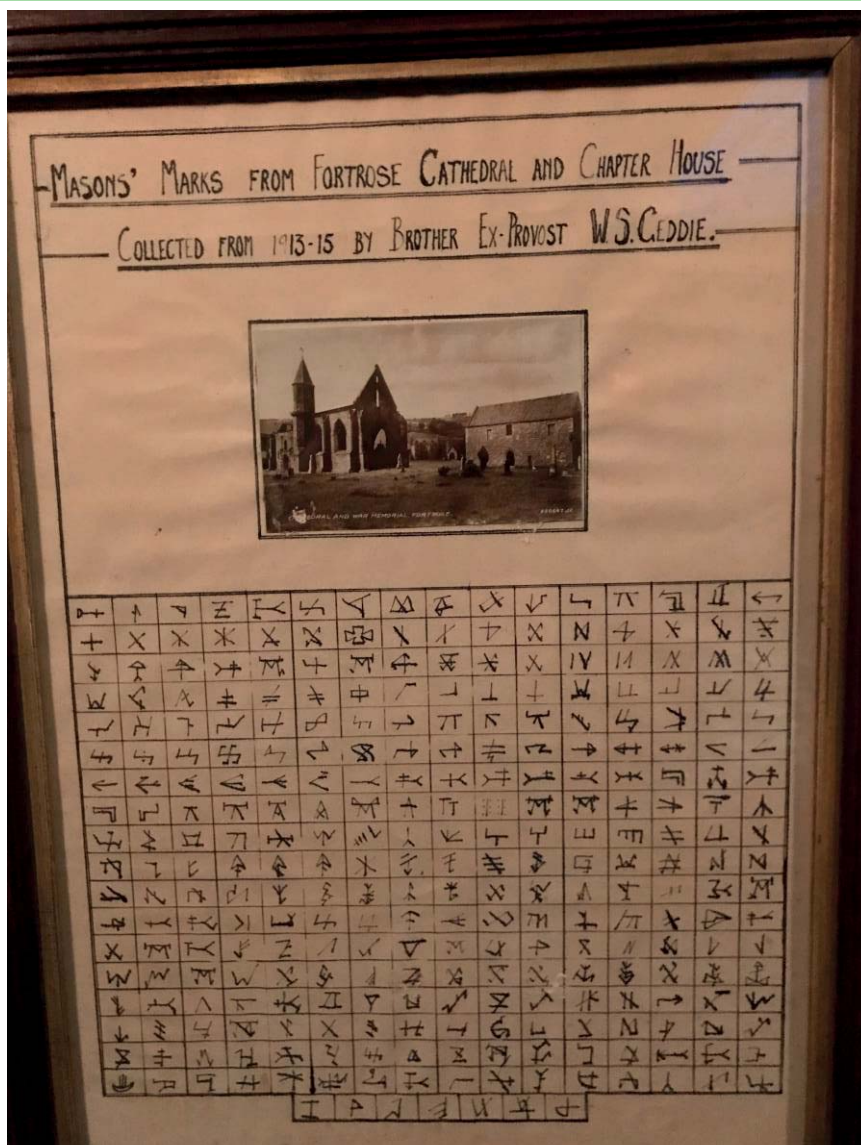 MASONS' MARKS FROM FORTROSE CATHEDRAL AND CHAPTER HOUSE
COLLECTED FROM 1913-15 BY BROTHER EX-PROVOST W.S. GEDDIE.
CATHEDRAL AND WAR MEMORIAL, FORTROSE.